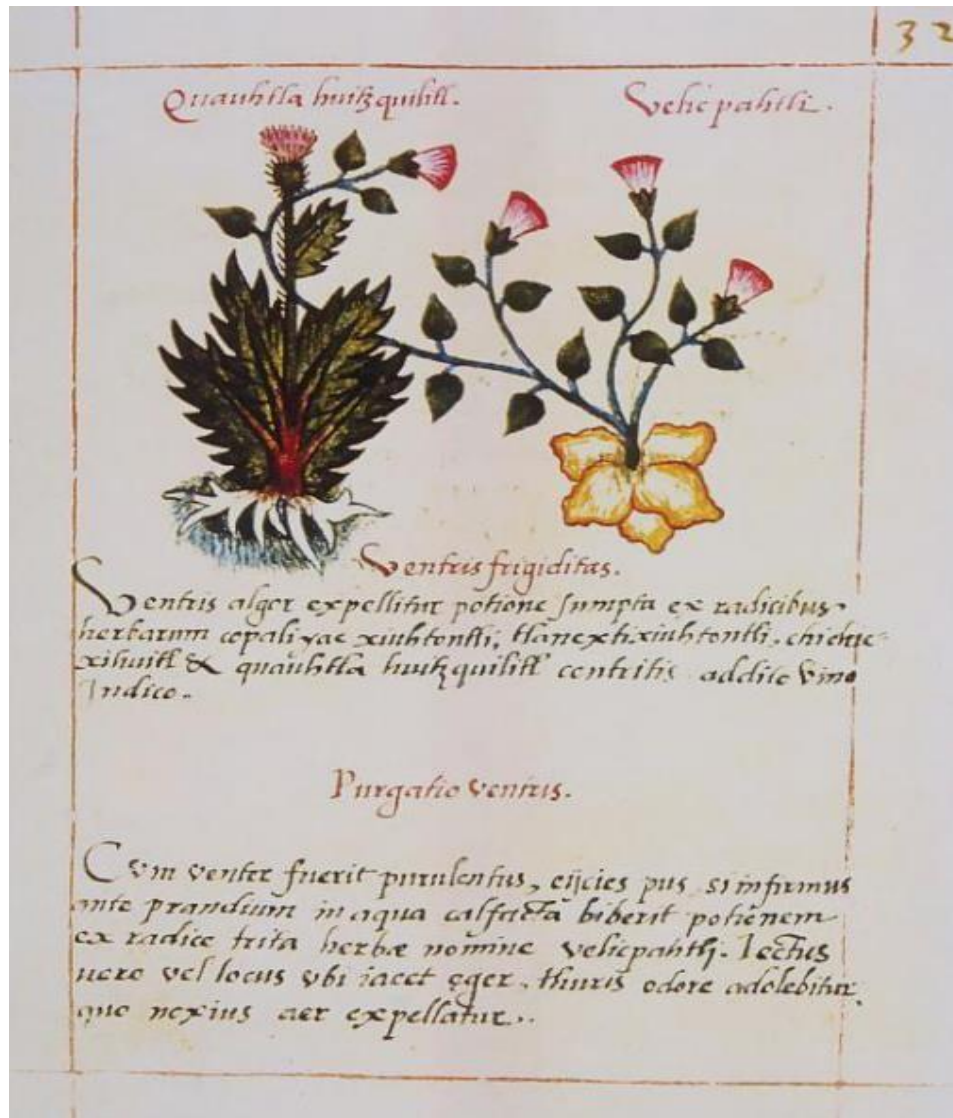 32
Quauhtla huitzquilitl. Velic pahtli.
Ventris frigiditas.
Ventris algor expellitur potione sumpta ex radicibus
herbarum copaliyac xiuhtontli, tlanextixiuhtontli, chichic-
xihuitl & quauhtla huitzquilitl contritis addito vino
Indico..
Purgatio ventris.
Cvm venter fuerit purulentus, eijcies pus si infirmus
ante prandium in aqua calfacta biberit potionem
ex radice trita herbæ nomine velicpahtli. Lectus
uero vel locus vbi iacet ęger, thuris odore adolebitur,
quo noxius aer expellatur..